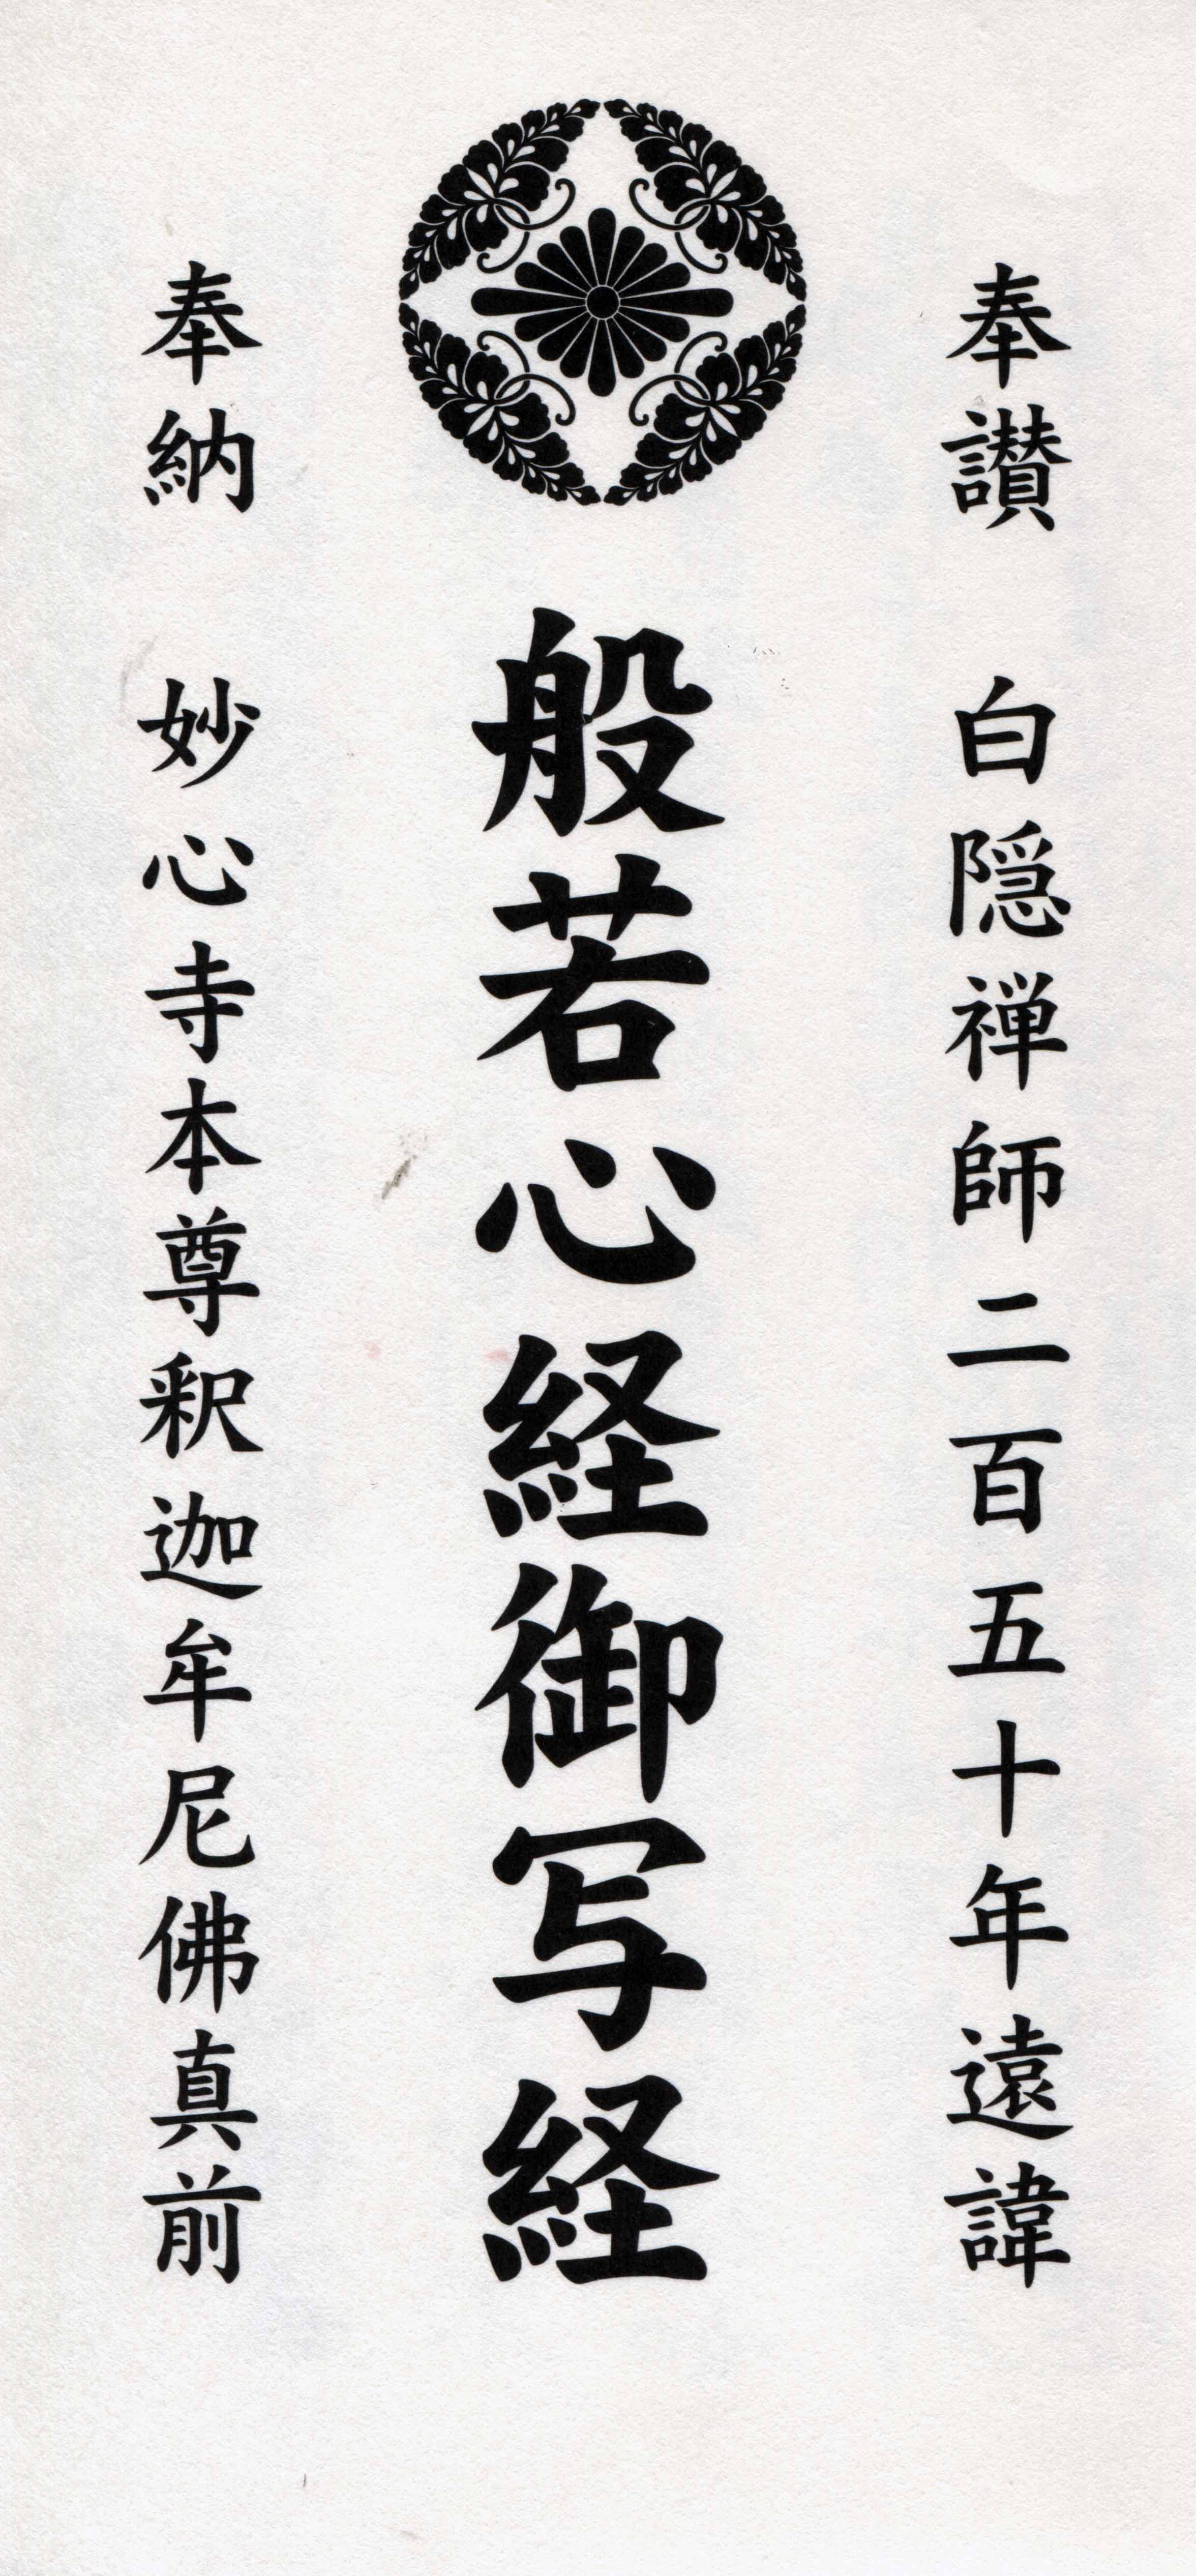 奉讃 白隠禅師二百五十年遠諱
般若心経御写経
奉納 妙心寺本尊釈迦牟尼佛真前